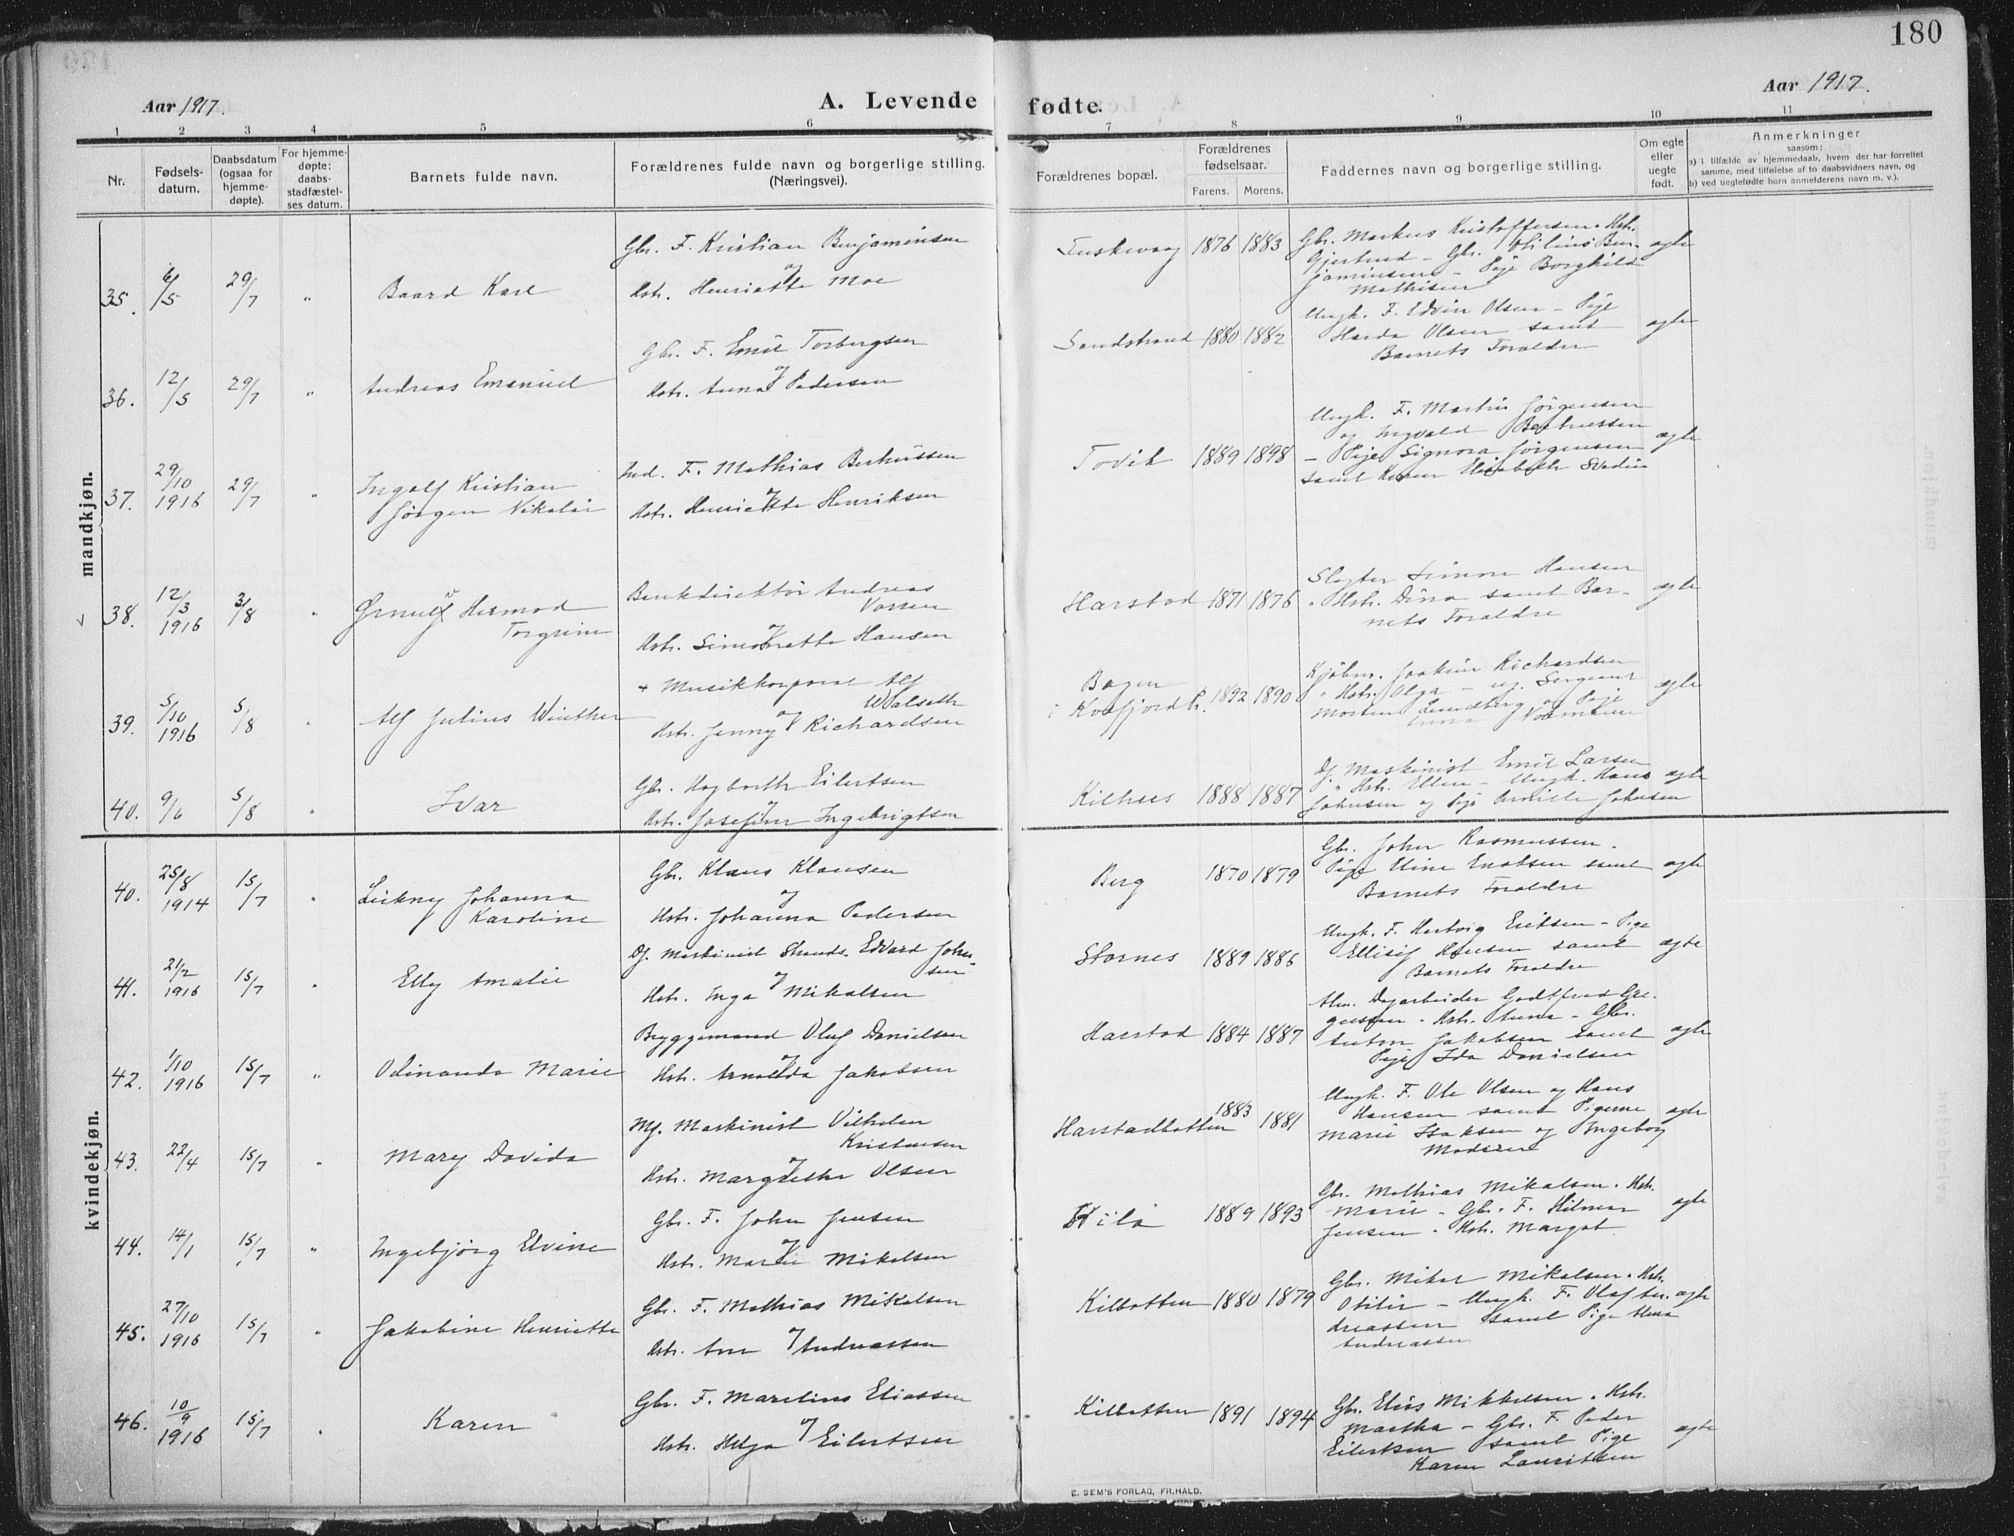 180
Aar 1917.
A. Levende fødte.
Aar 1917.
1 2 3 4 5 6 7 8 9 10 11
Nr.
Fødsels-
datum.
Daabsdatum
(ogsaa for
hjemme-
døpte).
For hjemme-
døpte:
daabs-
stadfæstel-
ses datum.
Barnets fulde navn.
Forældrenes fulde navn og borgerlige stilling.
(Næringsvei).
Forældrenes bopæl.
Forældrenes
fødselsaar.
Farens. Morens.
Faddernes navn og borgerlige stilling.
Om egte
eller
uegte
født.
Anmerkninger
saasom:
a) i tilfælde av hjemmedaab, hvem der har forrettet
samme, med tilføielse af to daabsvidners navn, og
b) ved uegtefødte barn anmelderens navn m. v.).
mandkjøn.
35. 6/5 29/7 " Baard Karl
Gbr. F. Kristian Benjaminsen
og
Hstr. Henriette Moe
Tuskevaag 1876 1883
Gbr. Markus Kristoffersen. Hstr.
Gjertrud - Gbr. Othilius Ben-
jaminsen - Pige Borghild
Mathisen
egte
36. 12/5 29/7 " Andreas Emanuel
Gbr. F. Emil Torbergsen
og
Hstr. Anna Pedersen
Sandstrand 1880 1882
Ungk. F. Edvin Olsen - Pige
Harda Olsen samt
Barnets Forældre
egte
37. 29/10 1916 29/7 " Ingolf Kristian
Jørgen Nikolai
Ind. F. Mathias Berhussen
og
Hstr. Henriette Henriksen
Tovik 1889 1898
Ungk. F. Martin Jørgensen
og Ingvald Berhussen
- Pige Signora Jørgensen
samt Karen Elisabeth
egte
38. 12/3 1916 3/8 " Ørnulf Hermod
Torgrim
Bankdirektør Andreas
og
Hstr. Simonette Hansen
Harstad 1871 1876
Simon Hansen
" Hstr. Dina samt Bar-
nets Forældre
egte
39. 5/10 1916 5/8 " Alf Julius Winther
+ Musikkorporal Alf
Walseth
og
Hstr. Jenny Richardsen
Bogen
i Kvæfjord P. 1892 1890
Kjøbm. Joakim Richardsen
" Hstr. Olga - ug. Sergeant
Morten Lundberg og Pige
egte
40. 9/6 5/8 " Ivar
Gbr. Hagbarth Eilertsen
og
Hstr. Josefine Ingebrigtsen
Kilhus 1888 1887
Df. Maskinist Emil Larsen
" Hstr. Ellen - Ungk. Hans
Johnsen og Pige Pernille Johnsen
egte
kvindekjøn.
40. 25/8 1914 15/7 " Leikny Johanna
Karoline
Gbr. Klaus Klausen
og
Hstr. Johanna Pedersen
Berg 1870 1879
Gbr. Johan Rasmussen.
Pige Eline Enoksen samt
Barnets Forældre
egte
41. 21/2 1916 15/7 " Elly Amalie
Df. Maskinist Edvard Johan-
sen
og
Hstr. Inga Mikalsen
Stornes 1889 1886
Ungk. F. Hartvig Eriksen - Pige
Ellisif Hansen samt
Barnets Forældre
egte
42. 1/10 1916 15/7 " Odinanda Marie
Bryggemand Oluf Danielsen
og
Hstr. Arnolda Jakobsen
Harstad 1884 1887
Dagarbeider Godtfred Gre-
gussen. Hstr. Anna - Gbr.
Anton Jakobsen samt
Pige Ida Danielsen
egte
43. 22/4 15/7 " Mary Davida
Mf. Maskinist Vilhelm
Kristensen
og
Hstr. Margrethe Olsen
Harstadbotten 1883 1881
Ungk. F. Ole Olsen og Hans
Hansen samt Pigerne
Marie Isaksen og Ingeborg
Madsen
egte
44. 14/1 15/7 " Ingebjørg Elvine
Gbr. F. John Jensen
og
Hstr. Marie Mikalsen
Kila 1889 1893
Gbr. Mathias Mikalsen. Hstr.
Marie - Gbr. F. Hilmar
Jensen - Hstr. Margot
egte
45. 27/10 1916 15/7 " Jakobine Henriette
Gbr. F. Mathias Mikalsen
og
Hstr. Ane Andreassen
Kilbotten 1880 1879
Gbr. Mikal Mikalsen. Hstr.
Otilie - Ungk. F. Olaf An-
dreassen samt Pige Alma
Andreassen
egte
46. 10/9 1916 15/7 " Karen
Gbr. F. Marelius Eliassen
og
Hstr. Helga Eilertsen
Kilbotten 1891 1894
Gbr. Elias Mikkelsen. Hstr.
Martha - Gbr. F. Peder
Eilertsen samt Pige
Karen Lauritsen
egte
E. SEM'S FORLAG, FR.HALD.